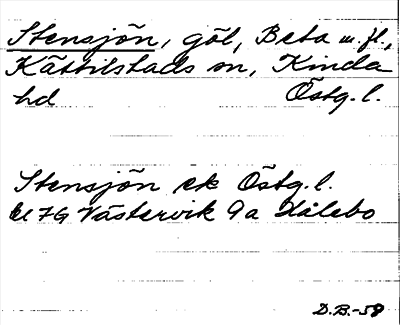 Stensjön, göl, Beta m. fl.,
Kättilstads sn, Kinda
hd Östg. l.
Stensjön ek Östg. l.
bl 7G Västervik 9a Kålebo
D.B.-58